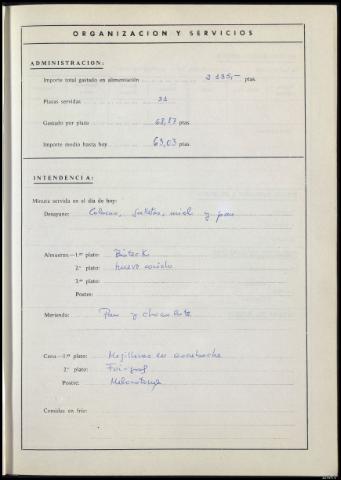 ORGANIZACION Y SERVICIOS
ADMINISTRACION:
Importe total gastado en alimentación 2 135,— ptas.
Plazas servidas 31
Gastado por plaza 68,87 ptas.
Importe medio hasta hoy 69,03 ptas.
INTENDENCIA:
Minuta servida en el día de hoy:
Desayuno: Colacao, galletas, miel y pan
Almuerzo—1.er plato: Bisteck
2.º plato: huevo cocido
3.er plato:
Postre:
Merienda: Pan y chocolate
Cena—1.er plato: Mejillones en escabeche
2.º plato: Foi-gras
Postre:
Comidas en frío: